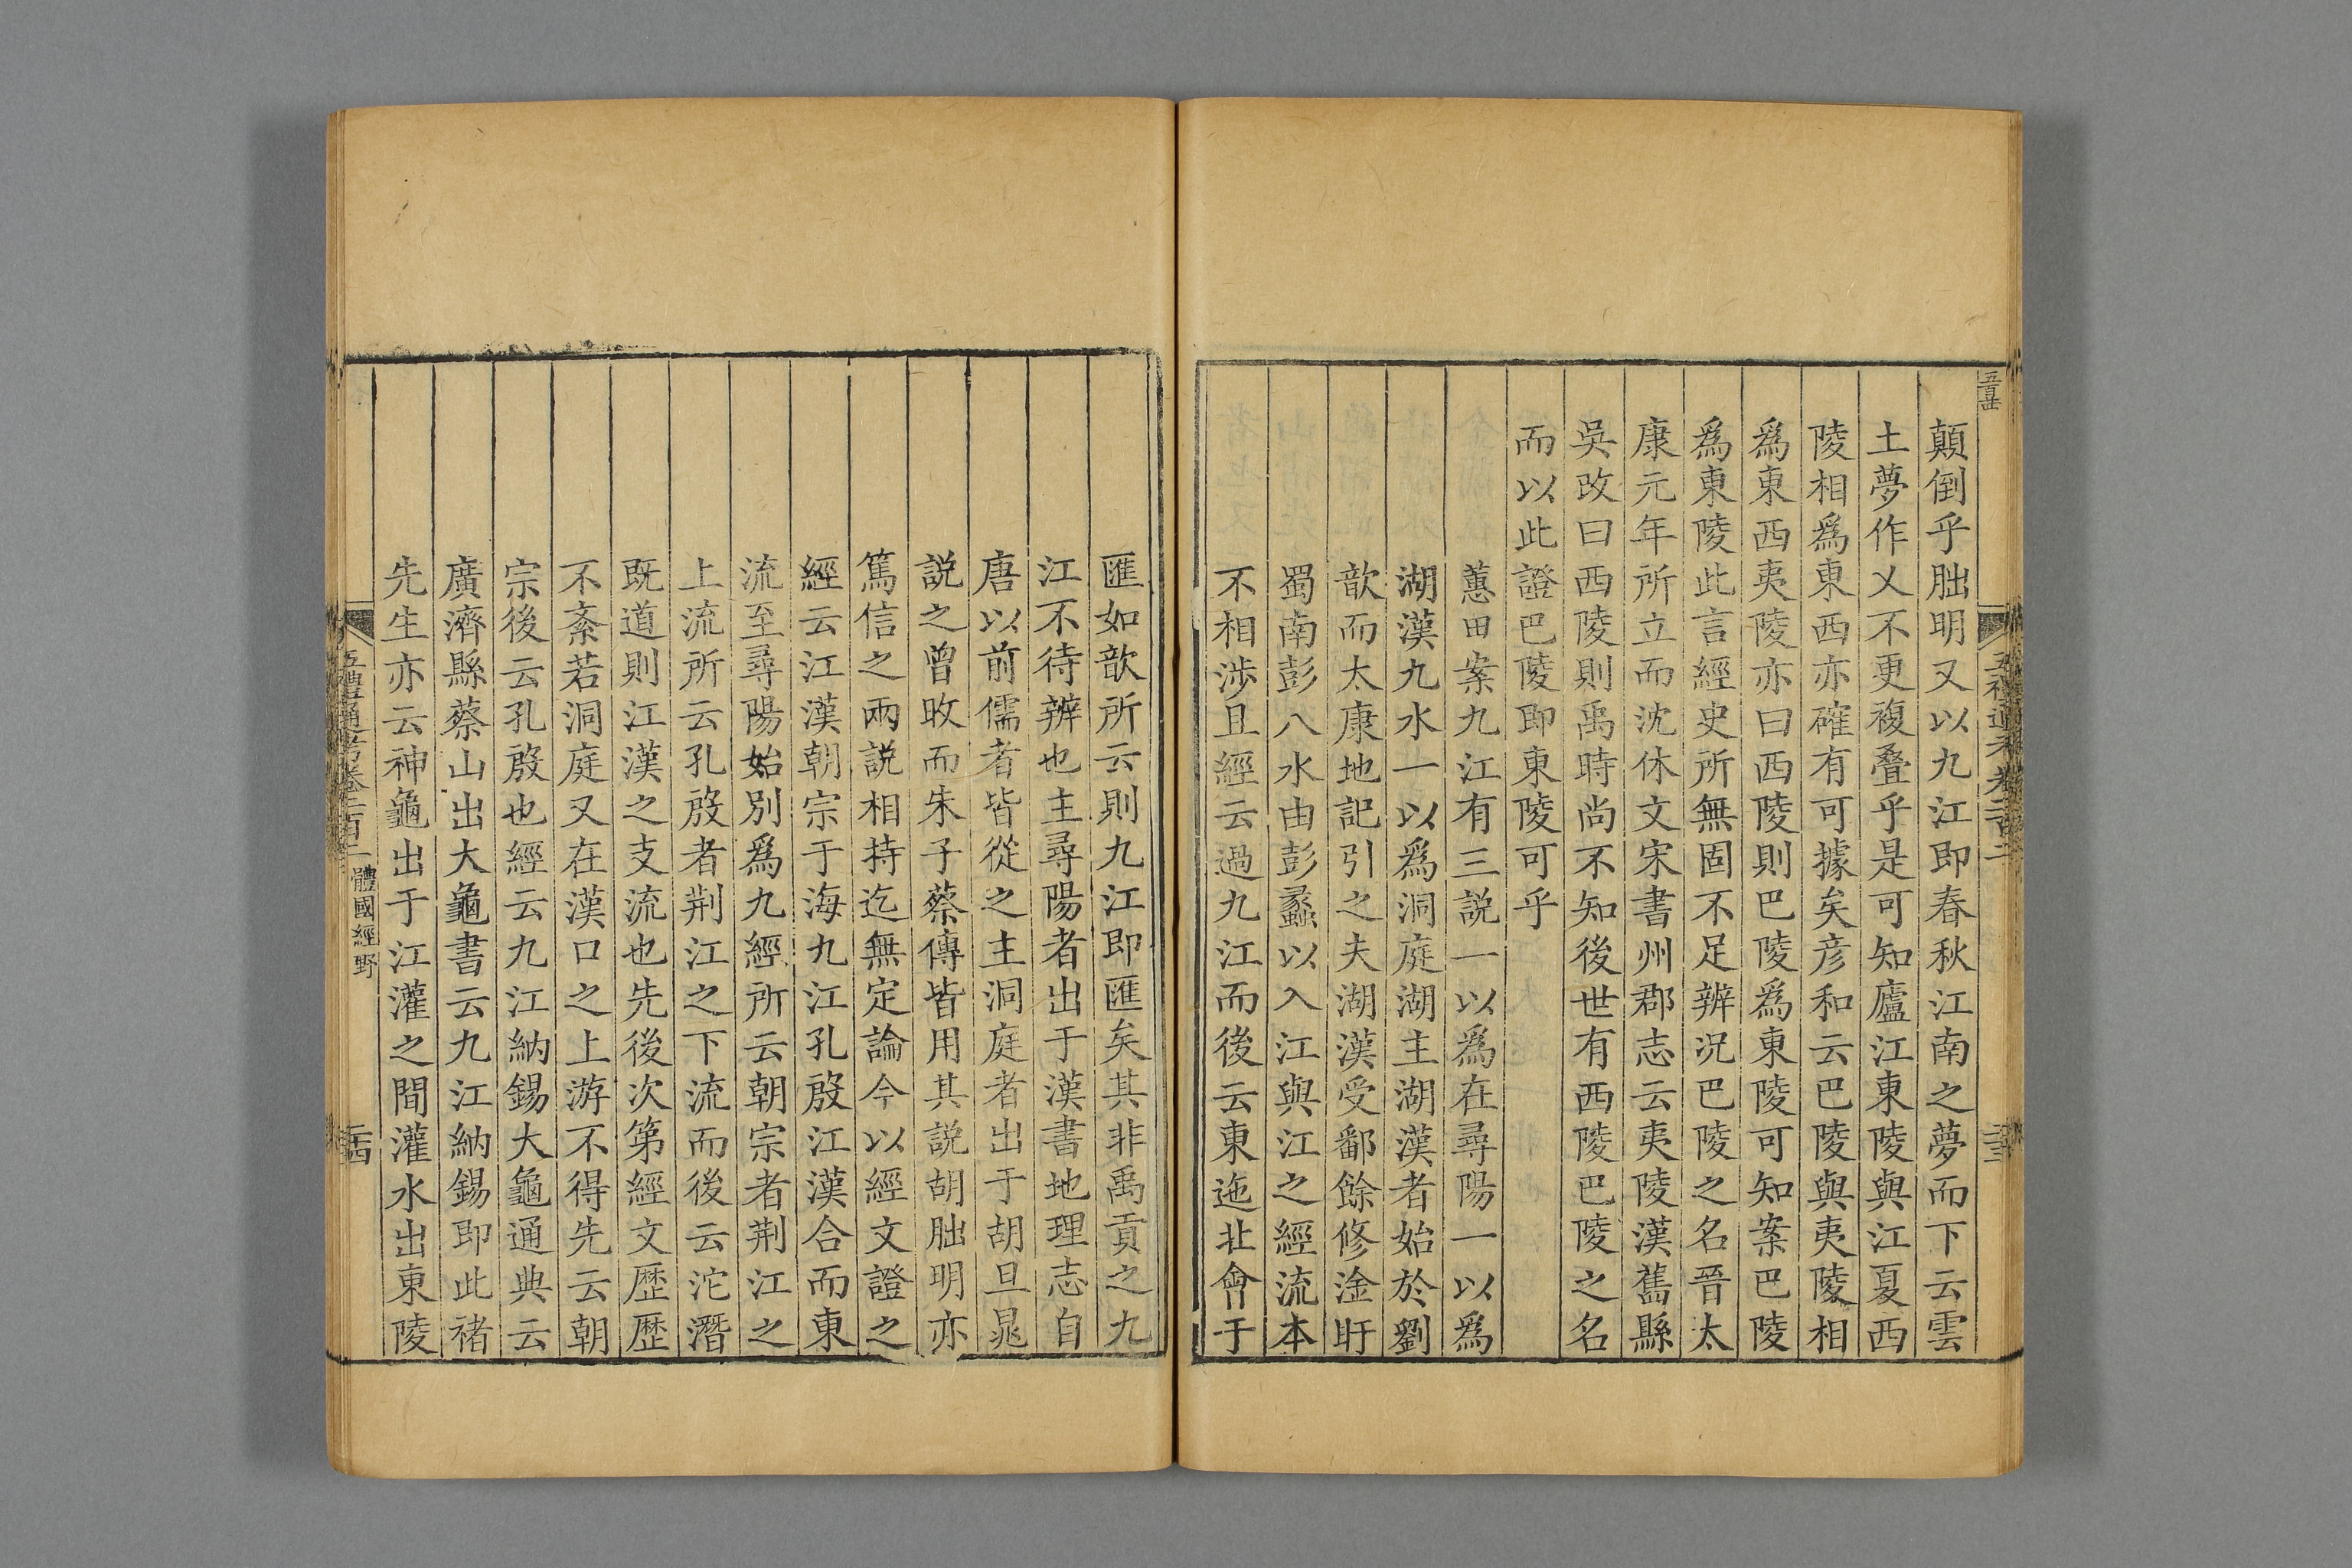 顛倒乎朏明又以九江即春秋江南之夢而下云雲
土夢作乂不更複疊乎是可知廬江東陵與江夏西
陵相爲東西亦確有可據矣彥和云巴陵與夷陵相
爲東西夷陵亦曰西陵則巴陵爲東陵可知案巴陵
爲東陵此言經史所無固不足辨況巴陵之名晉太
康元年所立而沈休文宋書州郡志云夷陵漢舊縣
吳改曰西陵則禹時尚不知後世有西陵巴陵之名
而以此證巴陵即東陵可乎
蕙田案九江有三説一以爲在尋陽一以爲
湖漢九水一以爲洞庭湖主湖漢者始於劉
歆而太康地記引之夫湖漢受鄱餘修淦盱
蜀南彭八水由彭蠡以入江與江之經流本
不相涉且經云過九江而後云東迤北會于
匯如歆所云則九江即匯矣其非禹貢之九
江不待辨也主尋陽者出于漢書地理志自
唐以前儒者皆從之主洞庭者出于胡旦晁
説之曾旼而朱子蔡傳皆用其説胡朏明亦
篤信之兩説相持迄無定論今以經文證之
經云江漢朝宗于海九江孔殷江漢合而東
流至尋陽始別爲九經所云朝宗者荆江之
上流所云孔殷者荆江之下流而後云沱潛
既道則江漢之支流也先後次第經文歷歷
不紊若洞庭又在漢口之上游不得先云朝
宗後云孔殷也經云九江納錫大龜通典云
廣濟縣蔡山出大龜書云九江納錫即此褚
先生亦云神龜出于江灌之間灌水出東陵
五禮通考卷二百一
體國經野
二十四